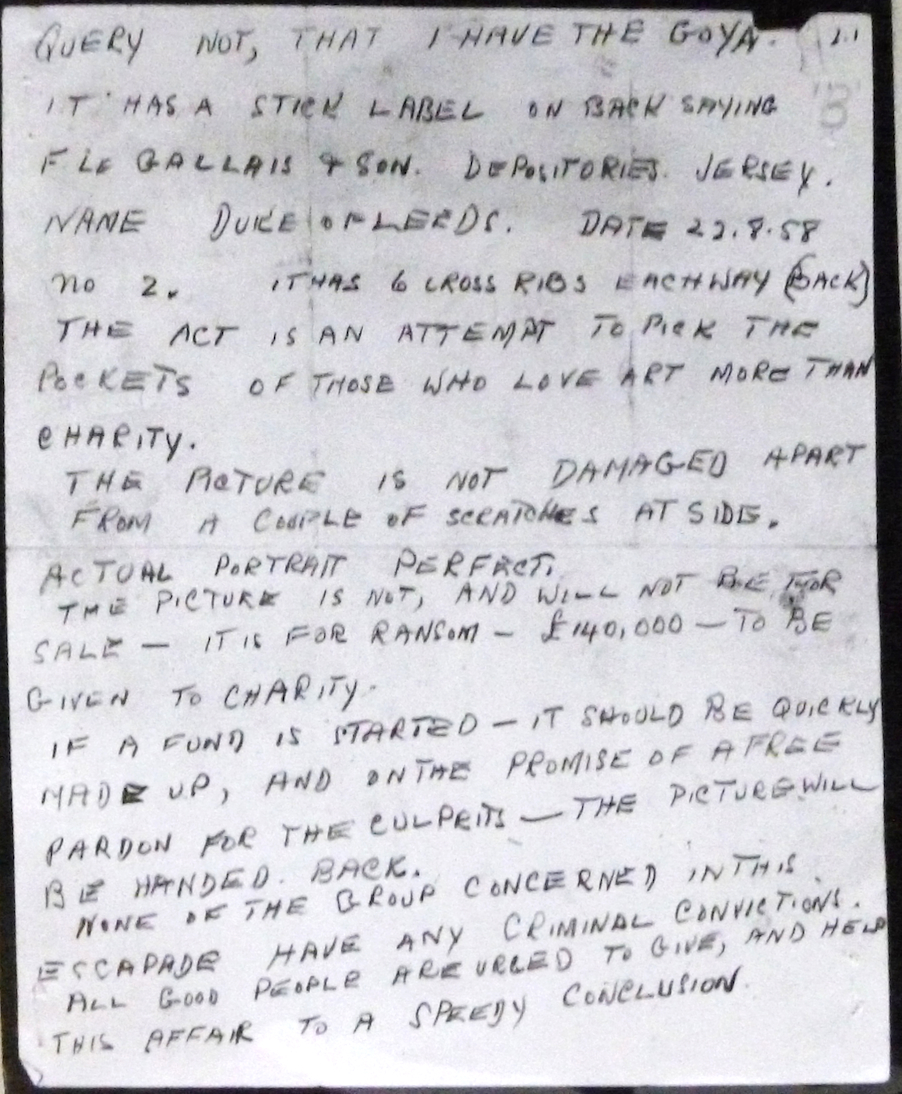 QUERY NOT, THAT I HAVE THE GOYA.
IT HAS A STICK LABEL ON BACK SAYING
F LE GALLAIS & SON. DEPOSITORIES. JERSEY.
NAME DUKE OF LEEDS. DATE 22.8.58
NO 2. IT HAS 6 CROSS RIBS EACH WAY (BACK)
THE ACT IS AN ATTEMPT TO PICK THE
POCKETS OF THOSE WHO LOVE ART MORE THAN
CHARITY.
THE PICTURE IS NOT DAMAGED APART
FROM A COUPLE OF SCRATCHES AT SIDE.
ACTUAL PORTRAIT PERFECT.
THE PICTURE IS NOT, AND WILL NOT BE FOR
SALE — IT IS FOR RANSOM — £140,000 — TO BE
GIVEN TO CHARITY.
IF A FUND IS STARTED — IT SHOULD BE QUICKLY
MADE UP, AND ON THE PROMISE OF A FREE
PARDON FOR THE CULPRITS — THE PICTURE WILL
BE HANDED. BACK.
NONE OF THE GROUP CONCERNED IN THIS
ESCAPADE HAVE ANY CRIMINAL CONVICTIONS.
ALL GOOD PEOPLE ARE URGED TO GIVE, AND HELP
THIS AFFAIR TO A SPEEDY CONCLUSION.